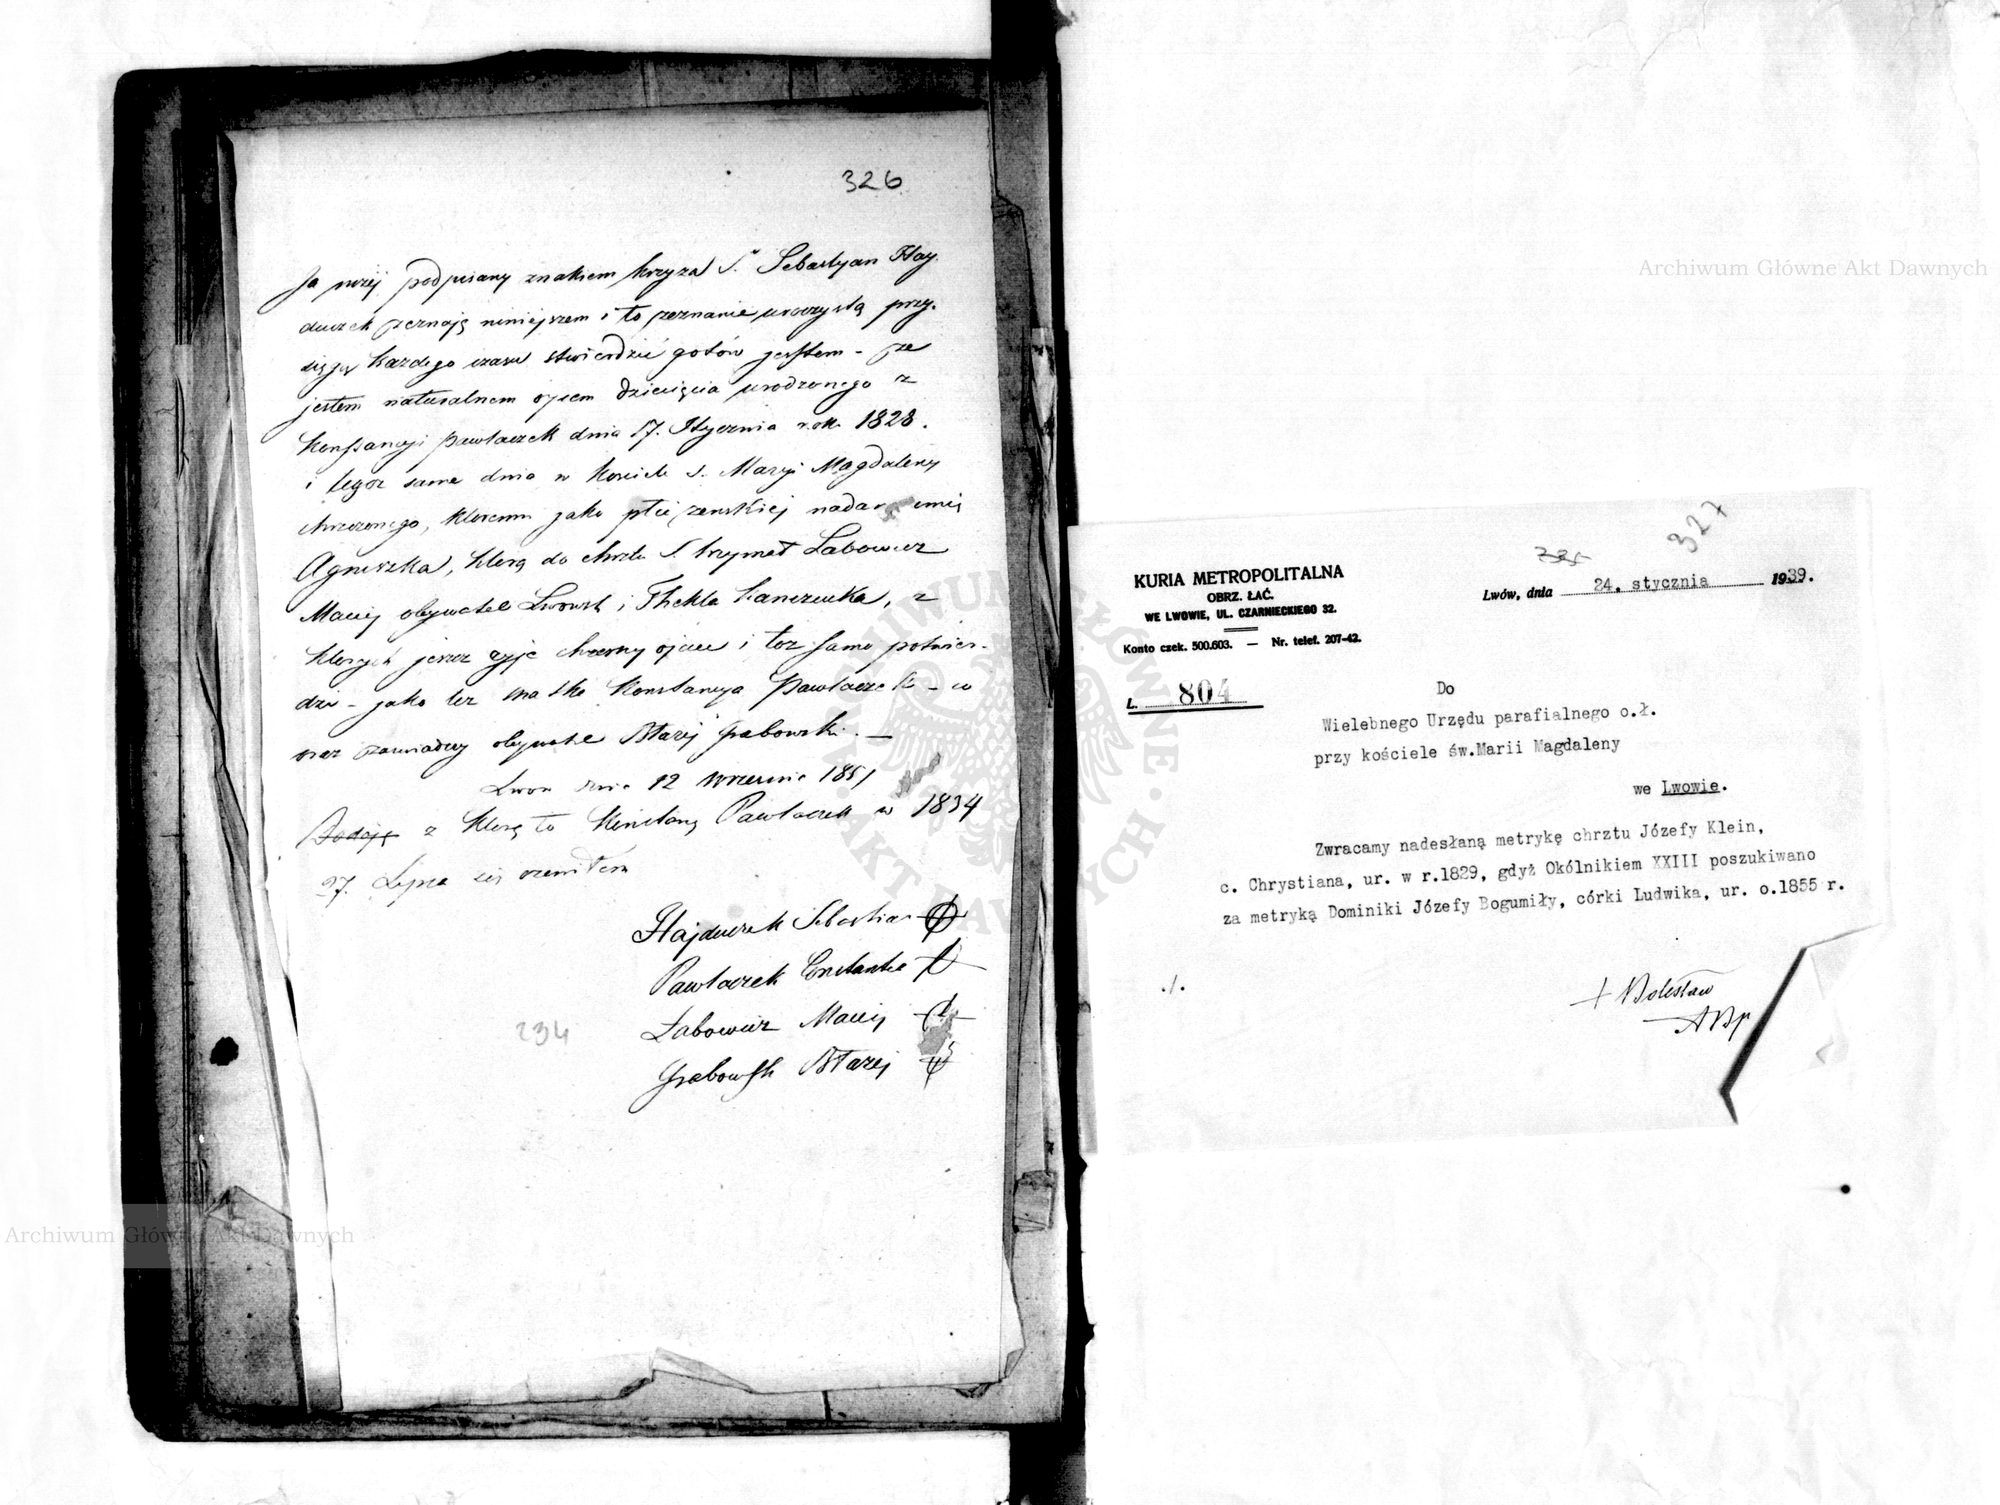 326
Ja niżej podpisany znakiem krzyża S. Sebastyan Hay
duczek zeznaję niniejszem i to zeznanie uroczystą przy-
sięgą każdego czasu stwierdzić gotów jestem - że
jestem naturalnem ojcem dziecięcia urodzonego z
Konstancyi Pawlaczek dnia 17. Stycznia rok 1828.
i tegoż same dnia w kościele S. Maryi Magdaleny
chrzczonego, któremu jako płci żenskiej nadano imię
Agnieszka, którą do chrztu S. trzymał Łabowicz
Maciej obywatel Lwowsk i Thekla, z
których jeszcze żyje chrzesny ojciec i toż samo potwier-
dzi - jako też matka Konstancya Pawlaczek - w
oraz obywatel Błażej Grabowski. —
Lwow dnia 12 Wrzesnia 1851
Dodaję z którą to Konstancą Pawlaczek w 1834
27. Lipca się ożeniłem
Hajduczek Sebastian
Pawlaczek Constantia
Łabowicz Maciej
Grabowsk Błażej
234
327
KURIA METROPOLITALNA
OBRZ. ŁAĆ.
WE LWOWIE, UL. CZARNIECKIEGO 32.
Konto czek. 500.603. — Nr. telef. 207-42.
Lwów, dnia 24. stycznia 1939.
L. 804
Do
Wielebnego Urzędu parafialnego o.ł.
przy kościele św.Marii Magdaleny
we Lwowie.
Zwracamy nadesłaną metrykę chrztu Józefy Klein,
c. Chrystiana, ur. w r.1829, gdyż Okólnikiem XXIII poszukiwano
za metryką Dominiki Józefy Bogumiły, córki Ludwika, ur. o.1855 r.
./.
+ Bolesław
ABp
Archiwum Główne Akt Dawnych
Archiwum Główne Akt Dawnych
ARCHIWUM GŁÓWNE · AKT DAWNYCH ·